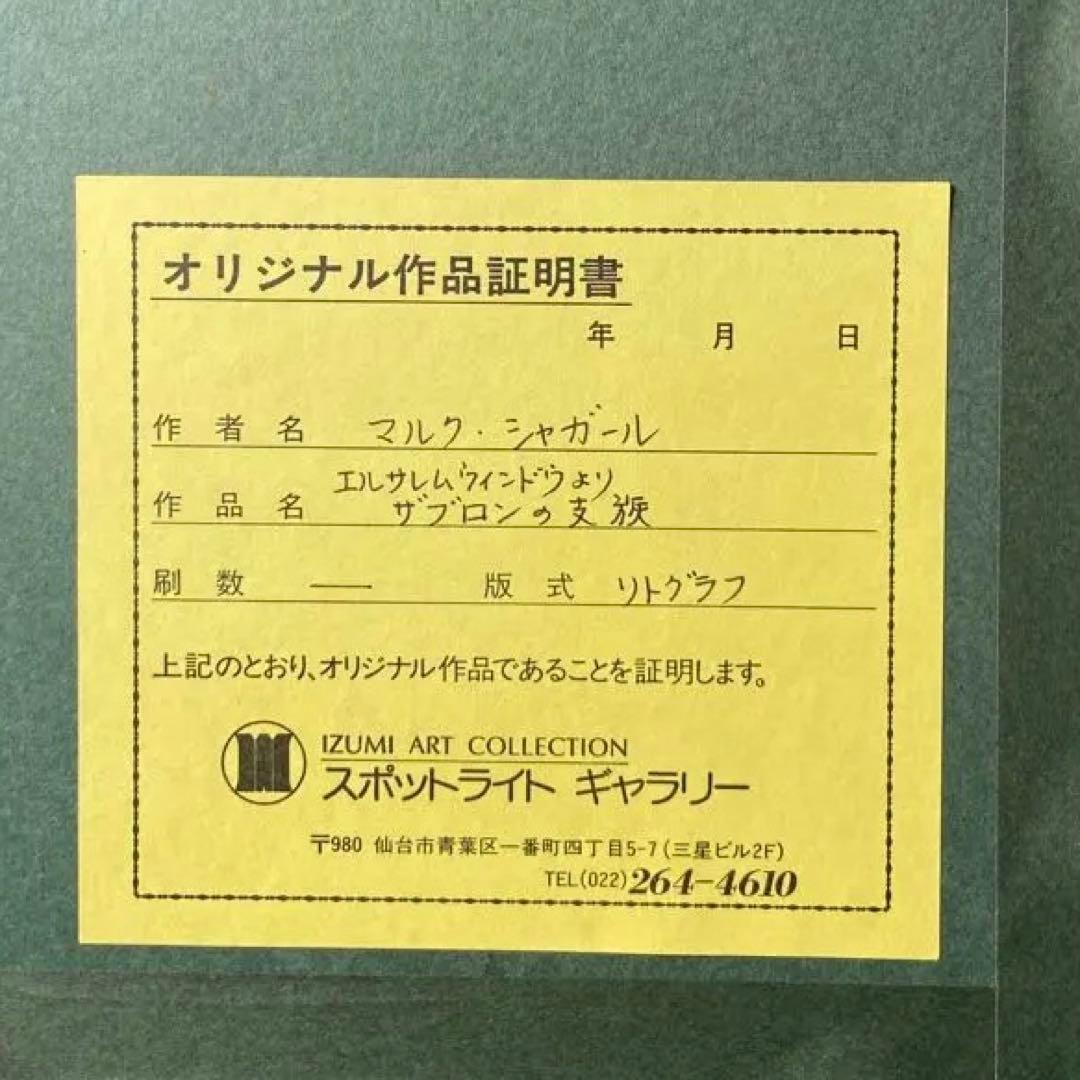 オリジナル作品証明書
年 月 日
作者名 マルク・シャガール
エルサレムウィンドウより
作品名 ザブロンの支族
刷数 —— 版式 リトグラフ
上記のとおり、オリジナル作品であることを証明します。
IZUMI ART COLLECTION
スポットライト ギャラリー
〒980 仙台市青葉区一番町四丁目5-7(三星ビル2F)
TEL(022)264-4610